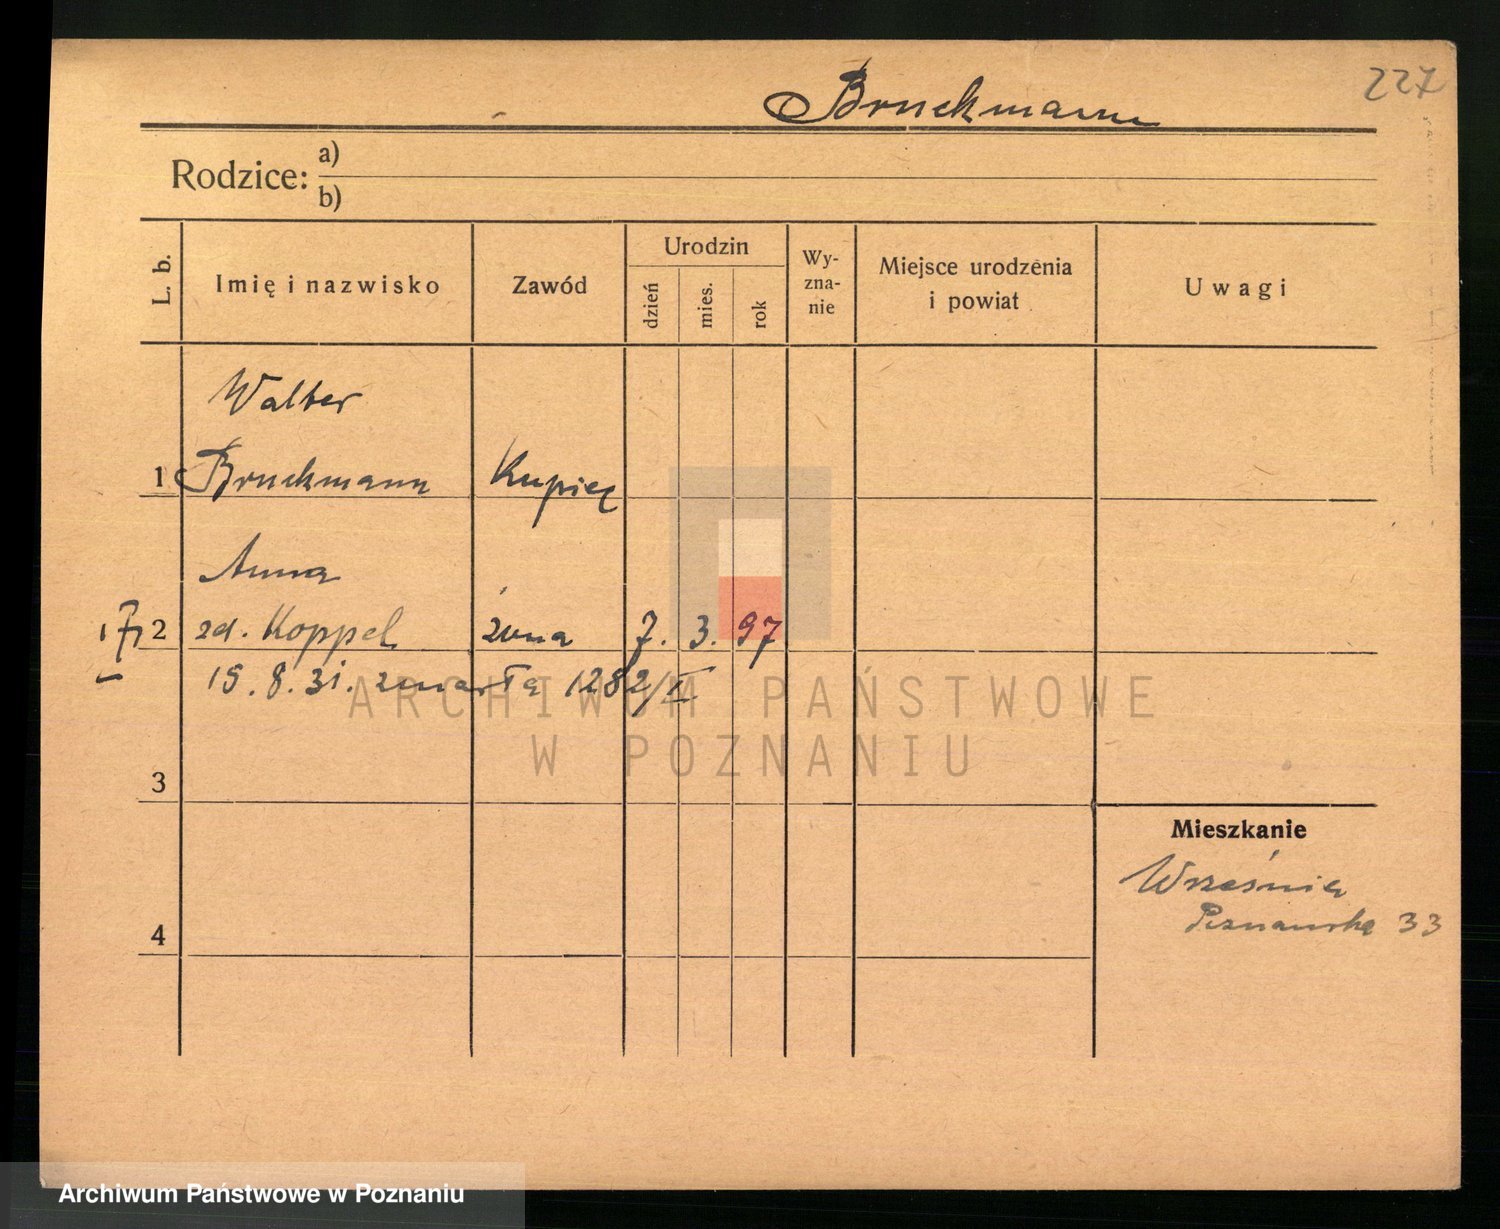 227
Bruckmann
Rodzice: a)
b)
L. b.
Imię i nazwisko
Zawód
Urodzin
dzień
mies.
rok
Wy-
zna-
nie
Miejsce urodzenia
i powiat
Uwagi
Walter
1 Bruckmann Kupiec
Anna
2 zd. Koppel żona 7. 3. 97
15. 8. 31. zmarła 1282/II
3
Mieszkanie
Września
Poznańska 33
4
ARCHIWUM PAŃSTWOWE
W POZNANIU
Archiwum Państwowe w Poznaniu